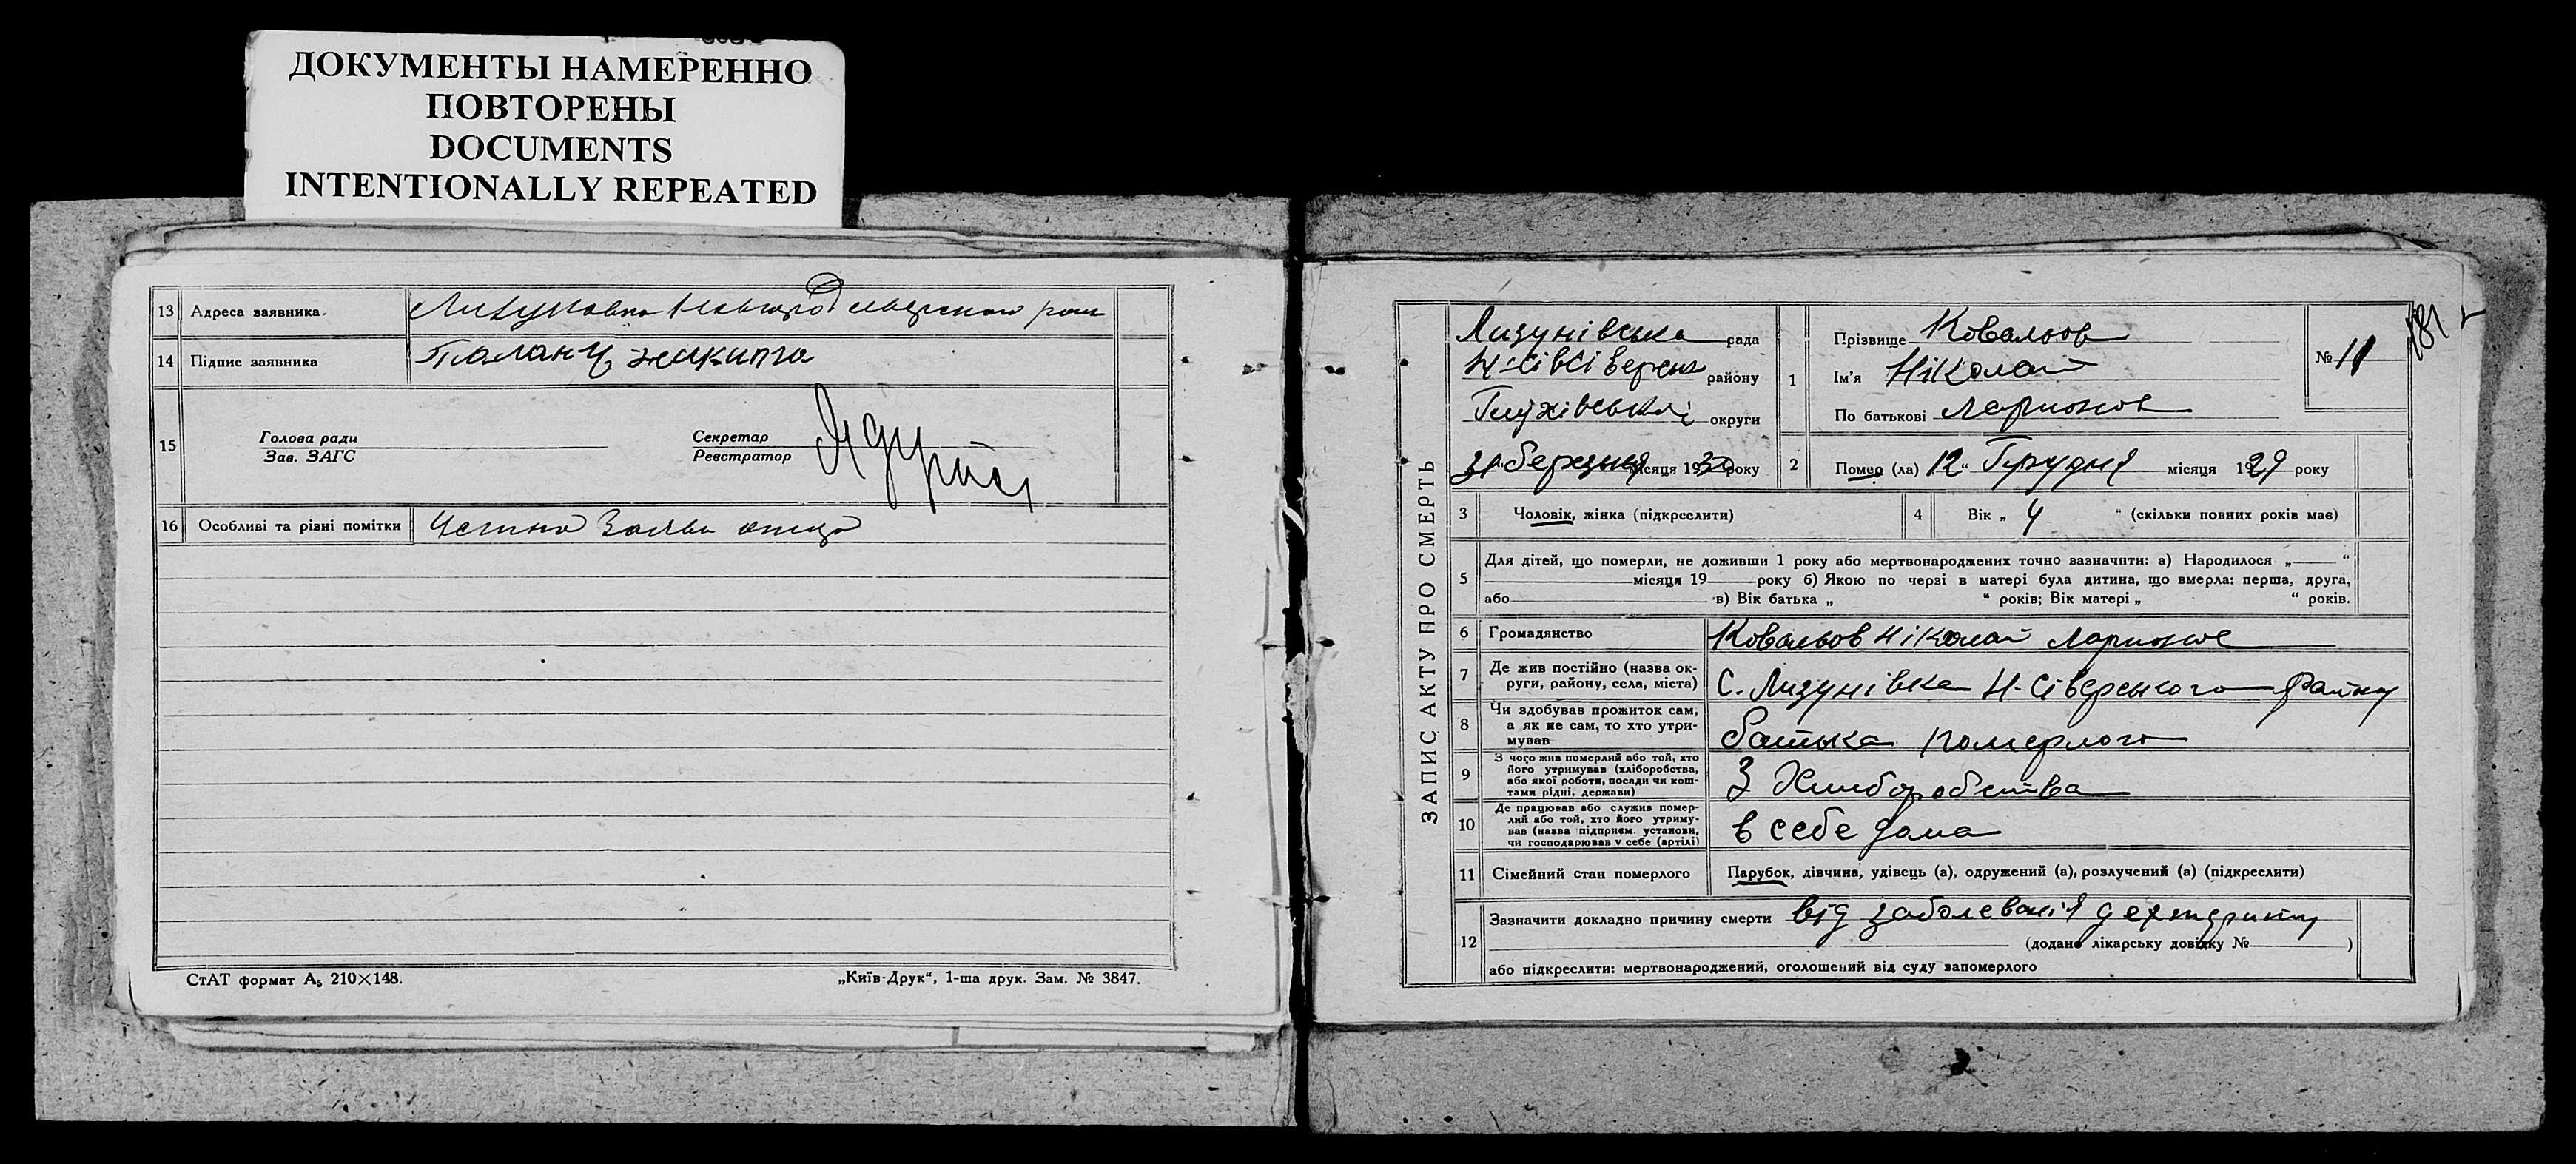 ДОКУМЕНТЫ НАМЕРЕННО
ПОВТОРЕНЫ
DOCUMENTS
INTENTIONALLY REPEATED
13 Адреса заявника.
14 Підпис заявника
15 Голова ради
Зав. ЗАГС
Секретар
Реєстратор
16 Особливі та різні помітки
СтАТ формат А₅ 210×148.
„Київ-Друк“, 1-ша друк. Зам. № 3847.
181
ЗАПИС АКТУ ПРО СМЕРТЬ
Лизунівська рада
району
Глухівської округи
31 березня місяця 1930 року
1 Прізвище Ковальов
Ім'я Ніколай
По батькові Ларионов
№ 11
2 Помер (ла) 12 “ Грудня місяця 1929 року
3 Чоловік, жінка (підкреслити)
4 Вік „ 4 “ (скільки повних років має)
5 Для дітей, що померли, не доживши 1 року або мертвонароджених точно зазначити: а) Народилося „ “
місяця 19 року б) Якою по черзі в матері була дитина, що вмерла: перша, друга,
або в) Вік батька „ “ років; Вік матері „ “ років.
6 Громадянство Ковальов Ніколай Ларионов
7 Де жив постійно (назва ок-
руги, району, села, міста) С. Лизунівка Н-Сіверського району
8 Чи здобував прожиток сам,
а як не сам, то хто утри-
мував батька померлого
9 З чого жив померлий або той, хто
його утримував (хліборобства,
або якої роботи, посади чи кош-
тами рідні, держави) З Хлиборобства
10 Де працював або служив помер-
лий або той, хто його утриму-
вав (назва підприєм. установи,
чи господарював у себе (артілі) в себе дома
11 Сімейний стан померлого Парубок, дівчина, удівець (а), одружений (а), розлучений (а) (підкреслити)
12 Зазначити докладно причину смерти від заболеванія
(додано лікарську довідку № )
або підкреслити: мертвонароджений, оголошений від суду запомерлого